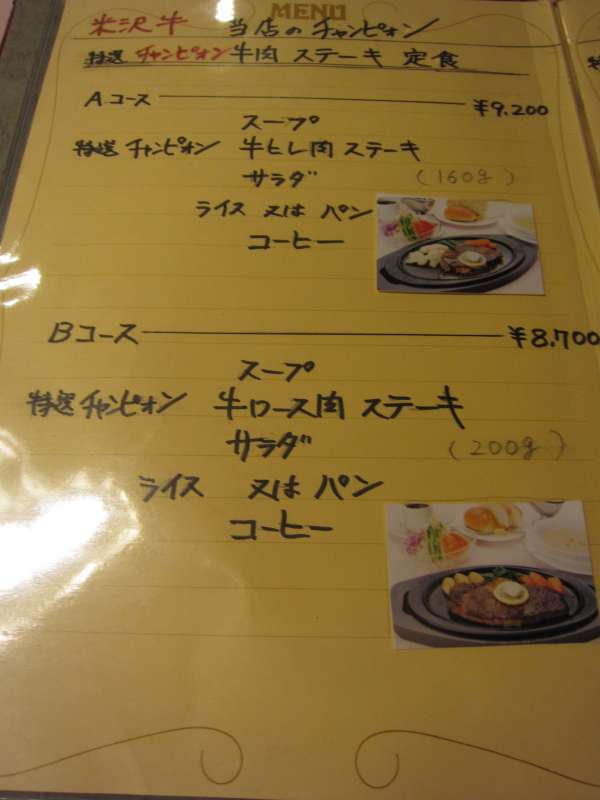 MENU
米沢牛 当店の チャンピオン
特選 チャンピオン 牛肉 ステーキ 定食
Aコース ¥9,200
スープ
特選 チャンピオン 牛ヒレ肉 ステーキ
サラダ (160g)
ライス 又は パン
コーヒー
Bコース ¥8,700
スープ
特選 チャンピオン 牛ロース肉 ステーキ
サラダ (200g)
ライス 又は パン
コーヒー